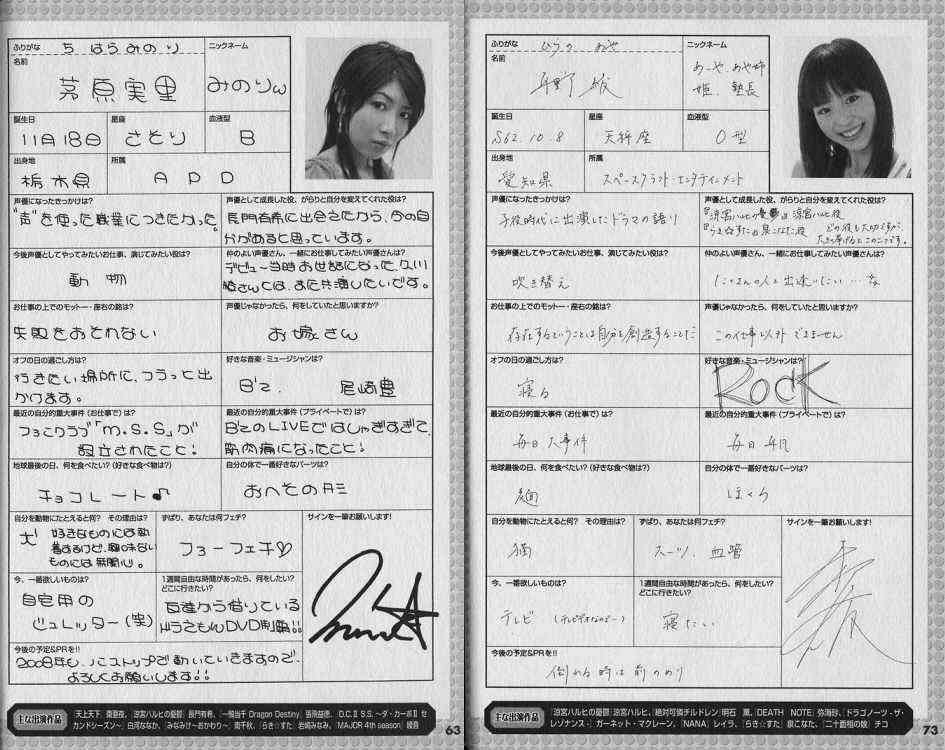 ふりがな ちはらみのり
名前 茅原実里
ニックネーム
みのりん
誕生日
11月18日
星座
さそり
血液型
B
出身地
栃木県
所属
APD
声優になったきっかけは?
"声"を使った職業につきたかった。
声優として成長した役、がらりと自分を変えてくれた役は?
長門有希に出会えたから、今の自
分があると思っています。
今後声優としてやってみたいお仕事、演じてみたい役は?
動物
仲のよい声優さん、一緒にお仕事してみたい声優さんは?
デビュー当時お世話になった久川
綾さんとは、また共演したいです。
お仕事の上でのモットー・座右の銘は?
失敗をおそれない
声優じゃなかったら、何をしていたと思いますか?
お嫁さん
オフの日の過ごし方は?
行きたい場所に、フラっと出
かけます。
好きな音楽・ミュージシャンは?
B'z. 尾崎豊
最近の自分的重大事件(お仕事で)は?
ファンクラブ「m.s.s」が
設立されたこと!
最近の自分的重大事件(プライベートで)は?
B'zのLIVEではしゃぎすぎて、
筋肉痛になったこと!
地球最後の日、何を食べたい?(好きな食べ物は?)
チョコレート♪
自分の体で一番好きなパーツは?
おへその形
自分を動物にたとえると何? その理由は?
犬 好きなものには執
着するけど、興味ない
ものには無関心。
ずばり、あなたは何フェチ?
フォーフェチ♡
サインを一筆お願いします!
今、一番欲しいものは?
自宅用の
ジェレッター(笑)
1週間自由な時間があったら、何をしたい?
どこに行きたい?
友達から借りている
ドラえもんDVD制覇!!
今後の予定&PRを!!
2008年も、ノンストップで動いていきますので、
よろしくお願いします!!
主な出演作品
63
ふりがな ひらの あや
名前 平野綾
ニックネーム
あーや、あや姉
姫、塾長
誕生日
S62.10.8
星座
天秤座
血液型
O型
出身地
愛知県
所属
スペースクラフト・エンタテインメント
声優になったきっかけは?
子役時代に出演したドラマの語り
声優として成長した役、がらりと自分を変えてくれた役は?
『涼宮ハルヒの憂鬱』涼宮ハルヒ役
『らき☆すた』泉こなた役
どの役も大切ですが、
大きく挙げるとこの二つです。
今後声優としてやってみたいお仕事、演じてみたい役は?
吹き替え
仲のよい声優さん、一緒にお仕事してみたい声優さんは?
たくさんの人と出逢いたい…
お仕事の上でのモットー・座右の銘は?
存在するということは自分を創造することだ
声優じゃなかったら、何をしていたと思いますか?
この仕事以外できません
オフの日の過ごし方は?
寝る
好きな音楽・ミュージシャンは?
ROCK
最近の自分的重大事件(お仕事で)は?
毎日大事件
最近の自分的重大事件(プライベートで)は?
毎日平凡
地球最後の日、何を食べたい?(好きな食べ物は?)
麺
自分の体で一番好きなパーツは?
ほくろ
自分を動物にたとえると何? その理由は?
猫
ずばり、あなたは何フェチ?
スーツ、血管
サインを一筆お願いします!
今、一番欲しいものは?
テレビ
1週間自由な時間があったら、何をしたい?
どこに行きたい?
寝たい
今後の予定&PRを!!
倒れる時は前のめり
主な出演作品
73